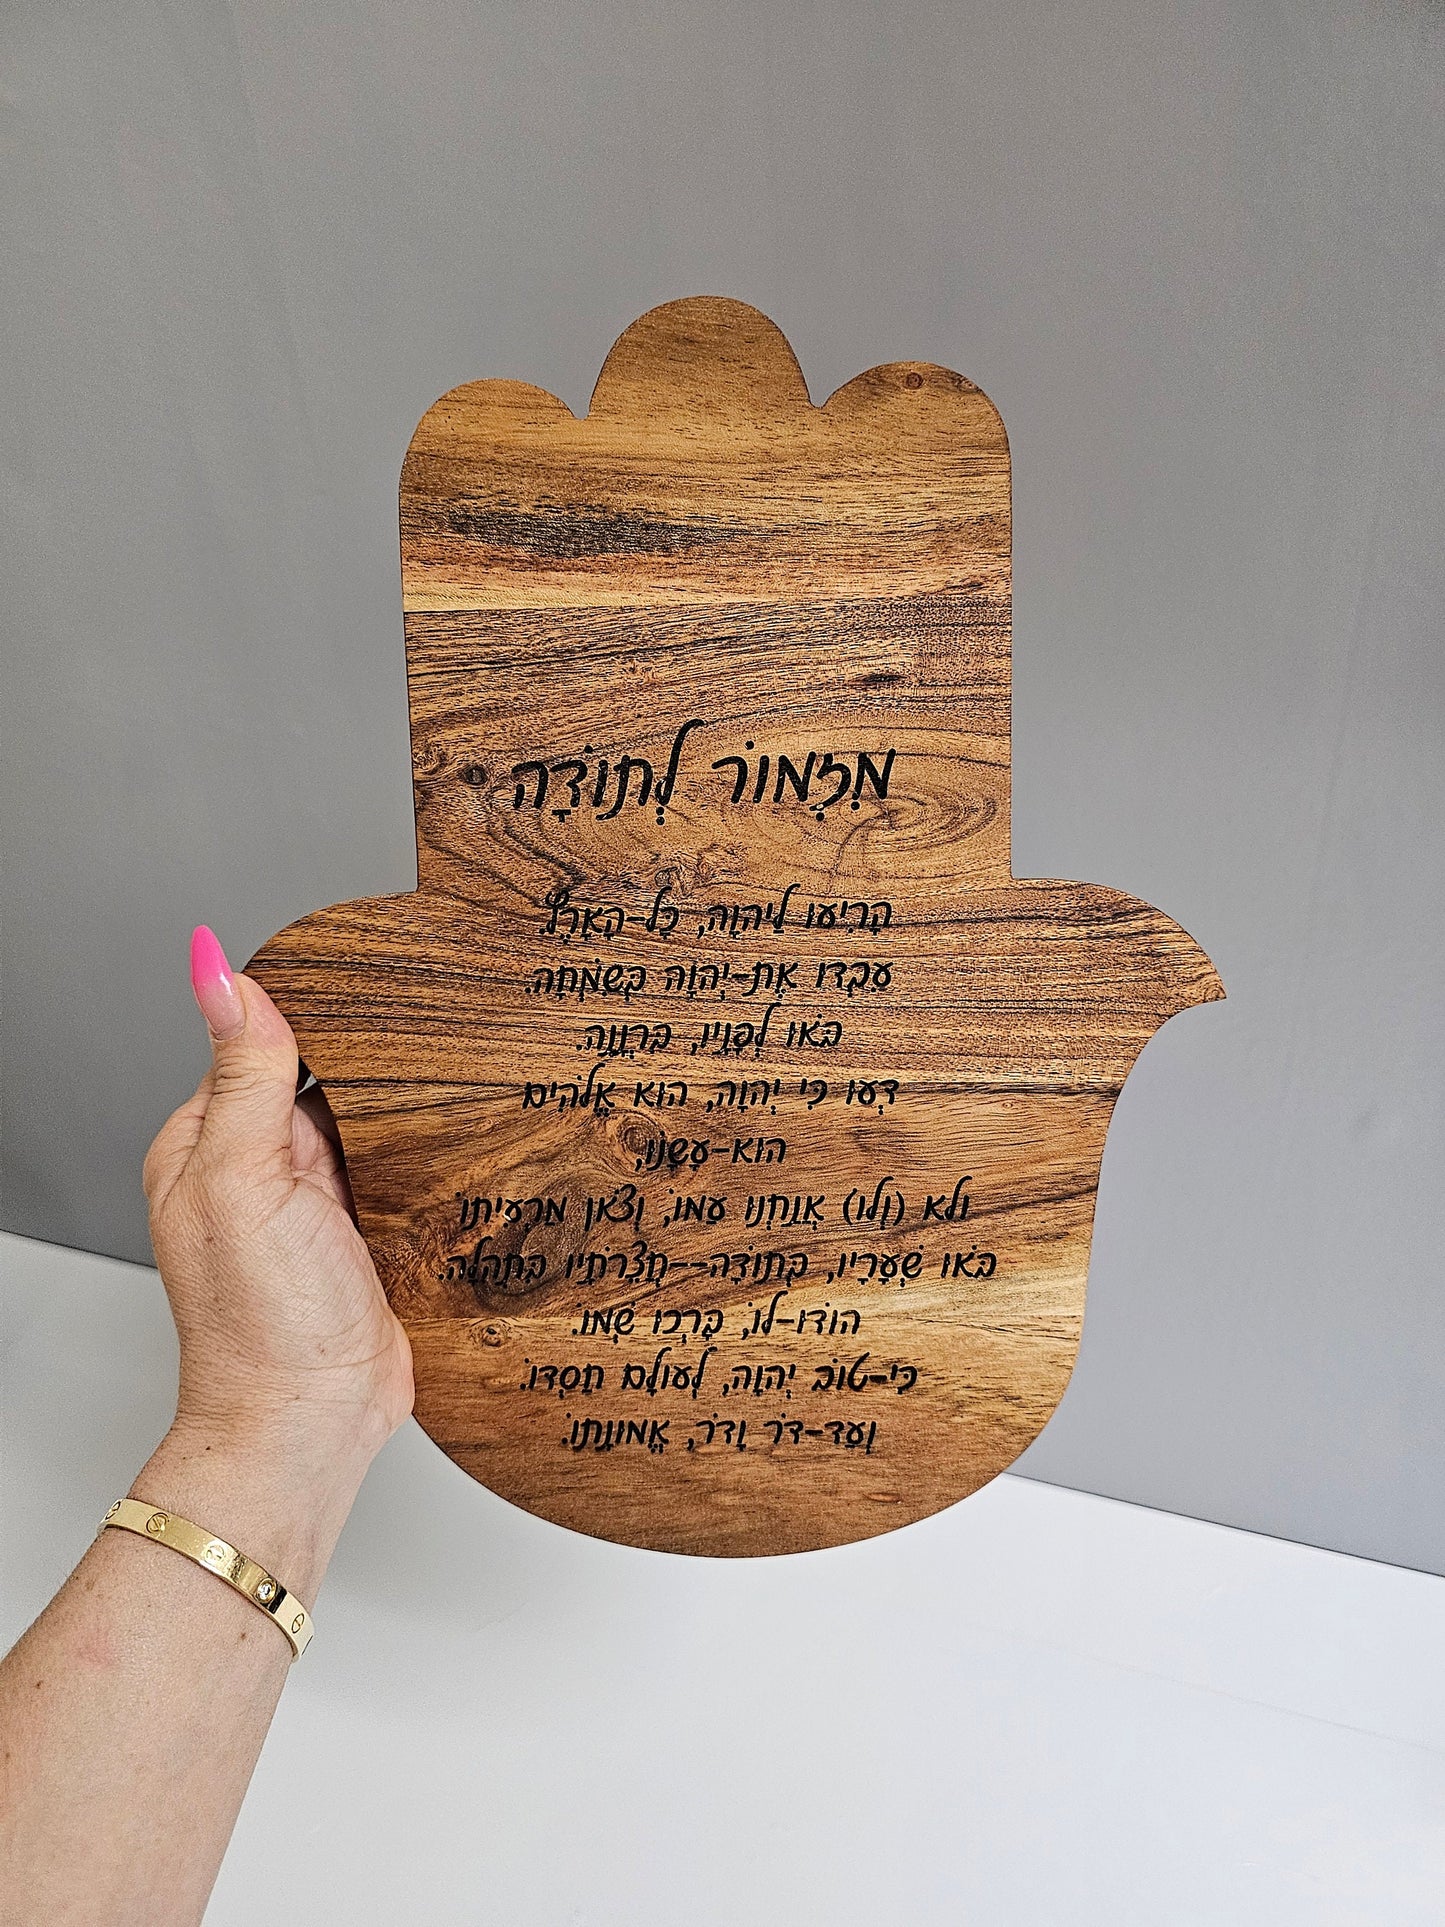 מִזְמוֹר לְתוֹדָה
הָרִיעוּ לַיהוָה, כָּל-הָאָרֶץ.
עִבְדוּ אֶת-יְהוָה בְּשִׂמְחָה.
בֹּאוּ לְפָנָיו, בִּרְנָנָה.
דְּעוּ כִּי יְהוָה, הוּא אֱלֹהִים
הוּא-עָשָׂנוּ,
ולא (וְלוֹ) אֲנַחְנוּ עַמּוֹ, וְצֹאן מַרְעִיתוֹ
בֹּאוּ שְׁעָרָיו, בְּתוֹדָה--חֲצֵרֹתָיו בִּתְהִלָּה.
הוֹדוּ-לוֹ, בָּרְכוּ שְׁמוֹ.
כִּי-טוֹב יְהוָה, לְעוֹלָם חַסְדּוֹ.
וְעַד-דֹּר וָדֹר, אֱמוּנָתוֹ.